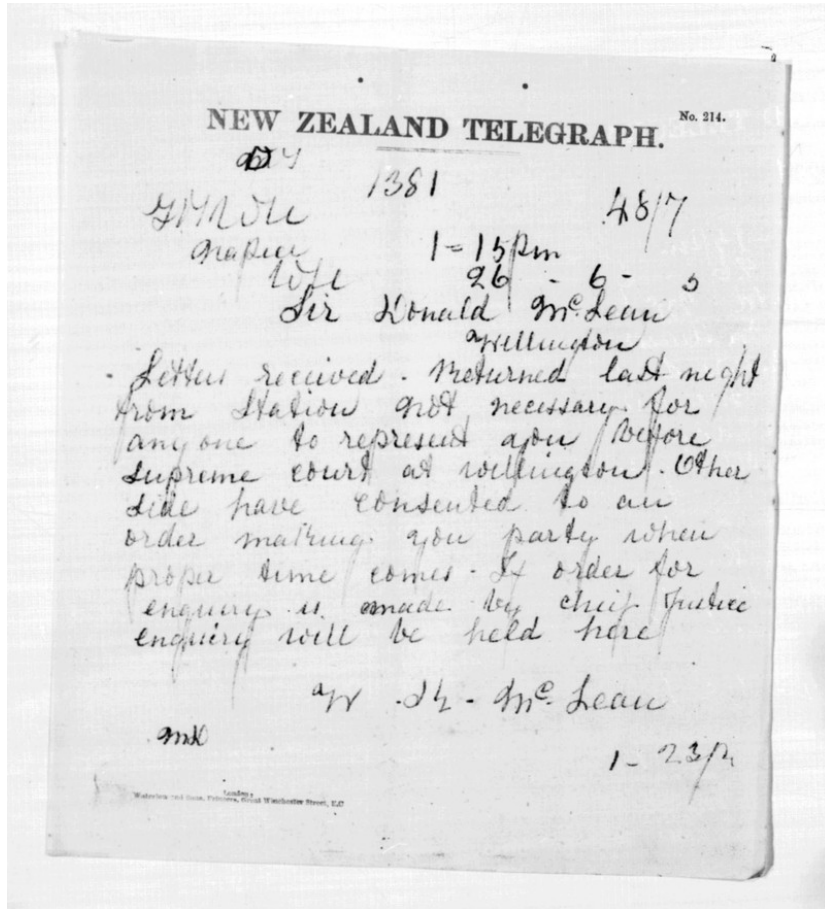 No. 214.
NEW ZEALAND TELEGRAPH.
1381
48/7
Napier 1-15pm
26 - 6 - 5
Sir Donald McLean
Wellington
Letter received. Returned last night
from Station not necessary for
anyone to represent you before
supreme court at wellington. Other
side have consented to an
order making you party when
proper time comes. If order for
enquiry is made by chief Justice
enquiry will be held here
McLean
1-23p
London:
Waterlow and Sons, Printers, Great Winchester Street, E.C